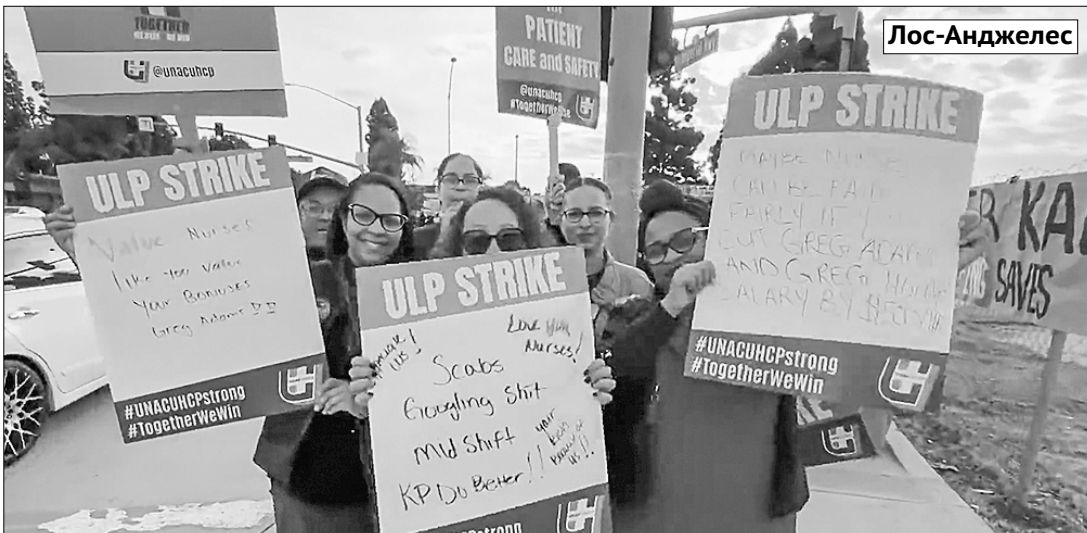 TOGETHER
WE WIN
@unacuhcp
PATIENT
CARE and SAFETY
@unacuhcp
#TogetherWeRise
Лос-Анджелес
ULP STRIKE
Value Nurses
like you value
your Bonuses
Greg Adams
#UNACUHCPstrong
#TogetherWeWin
ULP STRIKE
Love your
Nurses!
Scabs
Googling shit
Mid Shift
KP Do Better!!
your
ULP STRIKE
MAYBE NURSE
CAN BE PAID
FAIRLY IF YOU
CUT GREG ADAMS
AND GREG
SALARY BY
#UNACUHCPstrong
#TogetherWeWin
KA
SAVES